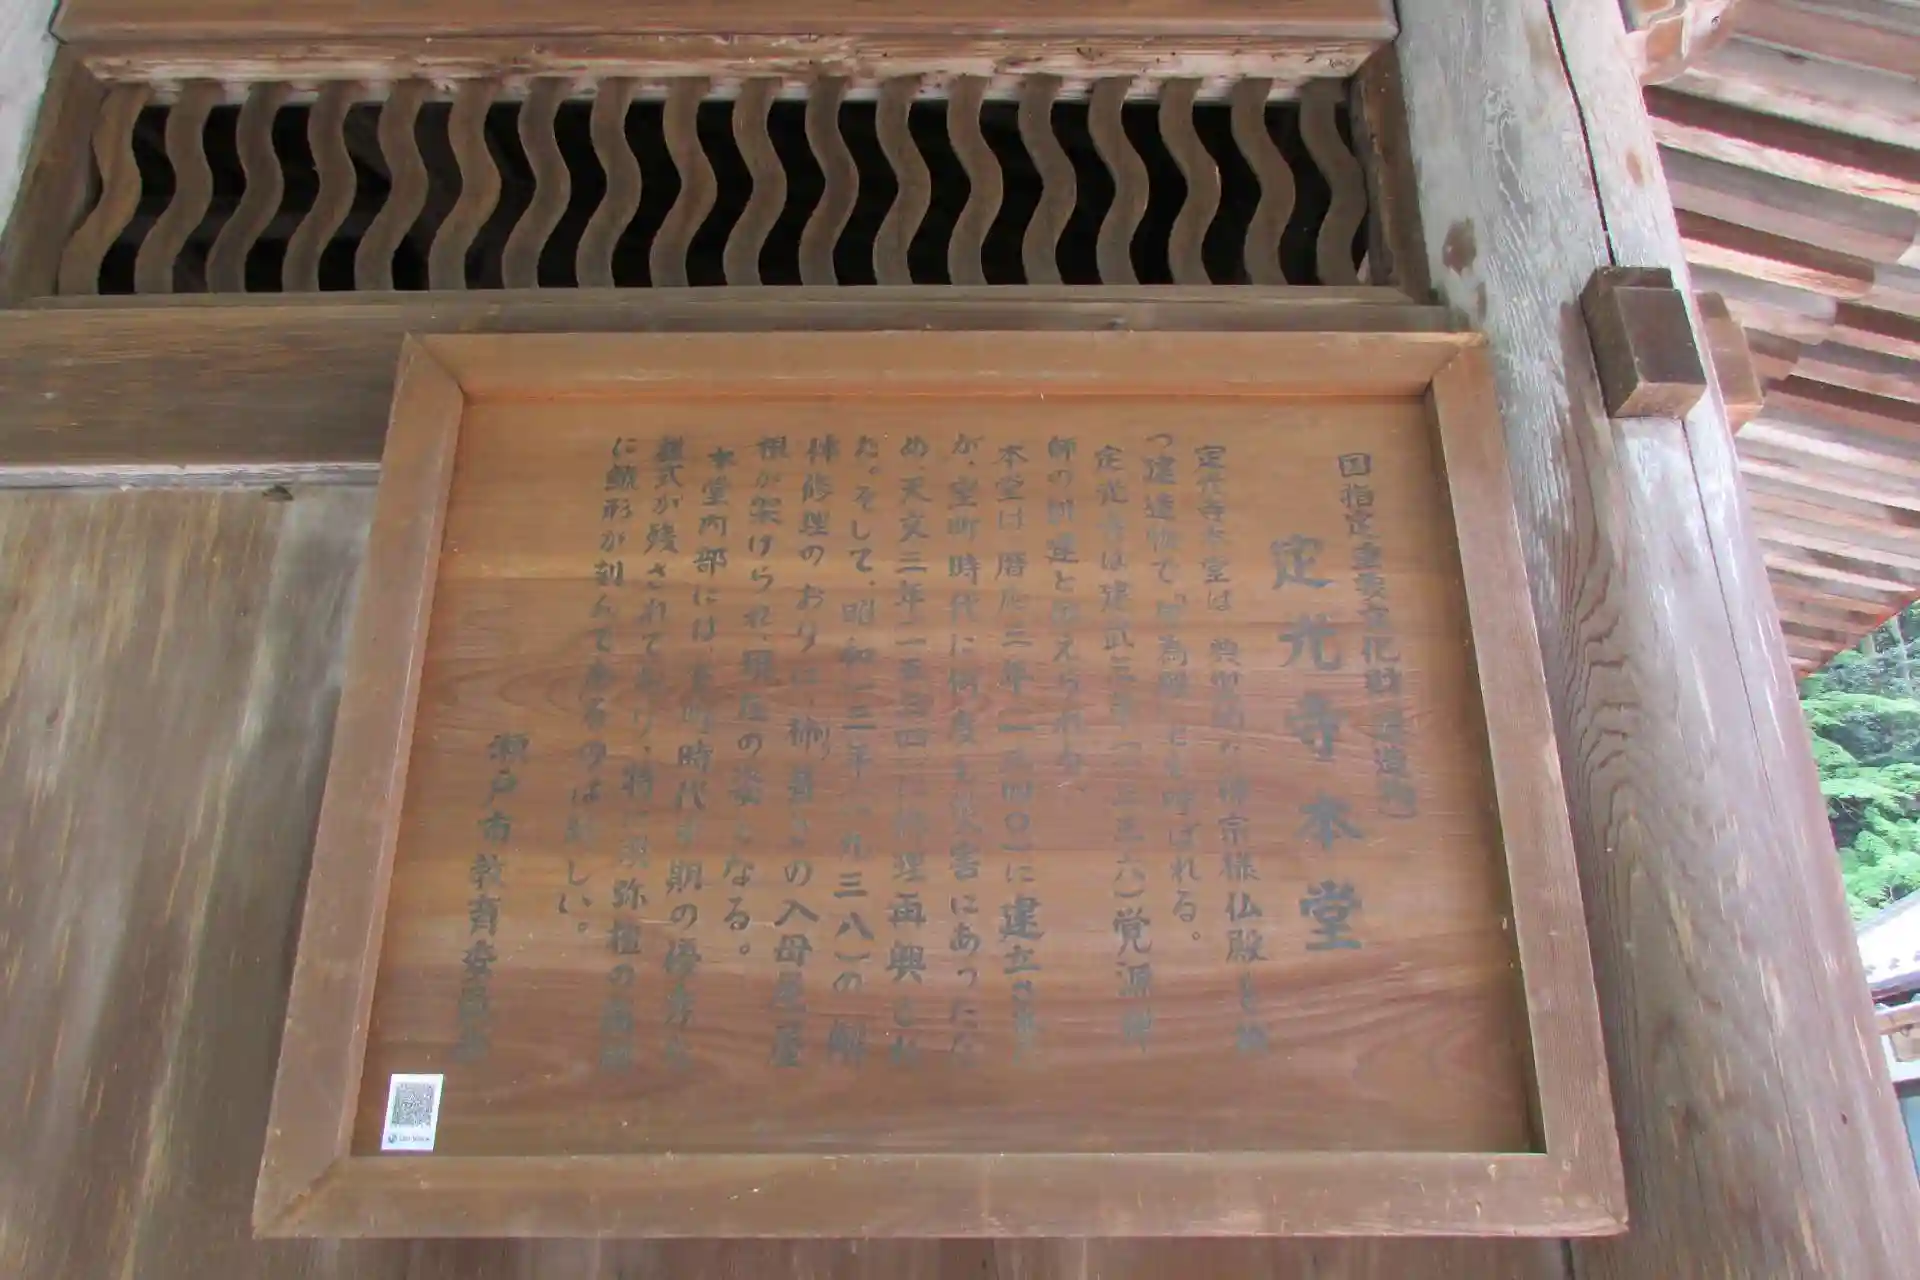 国指定重要文化財(建造物)
定光寺本堂
定光寺本堂は 典型的な禅宗様仏殿を
つ建造物で、 とも呼ばれる。
定光寺は建武三年(一三三六)覚源禅
師の開建と伝えられる、
本堂は暦応三年(一三四〇)に建立され
が、室町時代に何度も災害にあったた
め、天文三年(一五三四)に修理再興され
た。そして、昭和一三年(一九三八)の解
体修理のおりに、 の入母屋屋
根が架けられ、現在の姿となる。
本堂内部には、室町時代 期の優秀な
様式が残されており、特に須弥壇の
に鯱形が刻んであるのは珍しい。
瀬戸市教育委員会